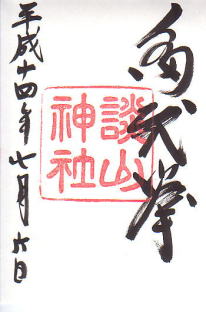 多武峯
談山
神社
平成十四年七月六日